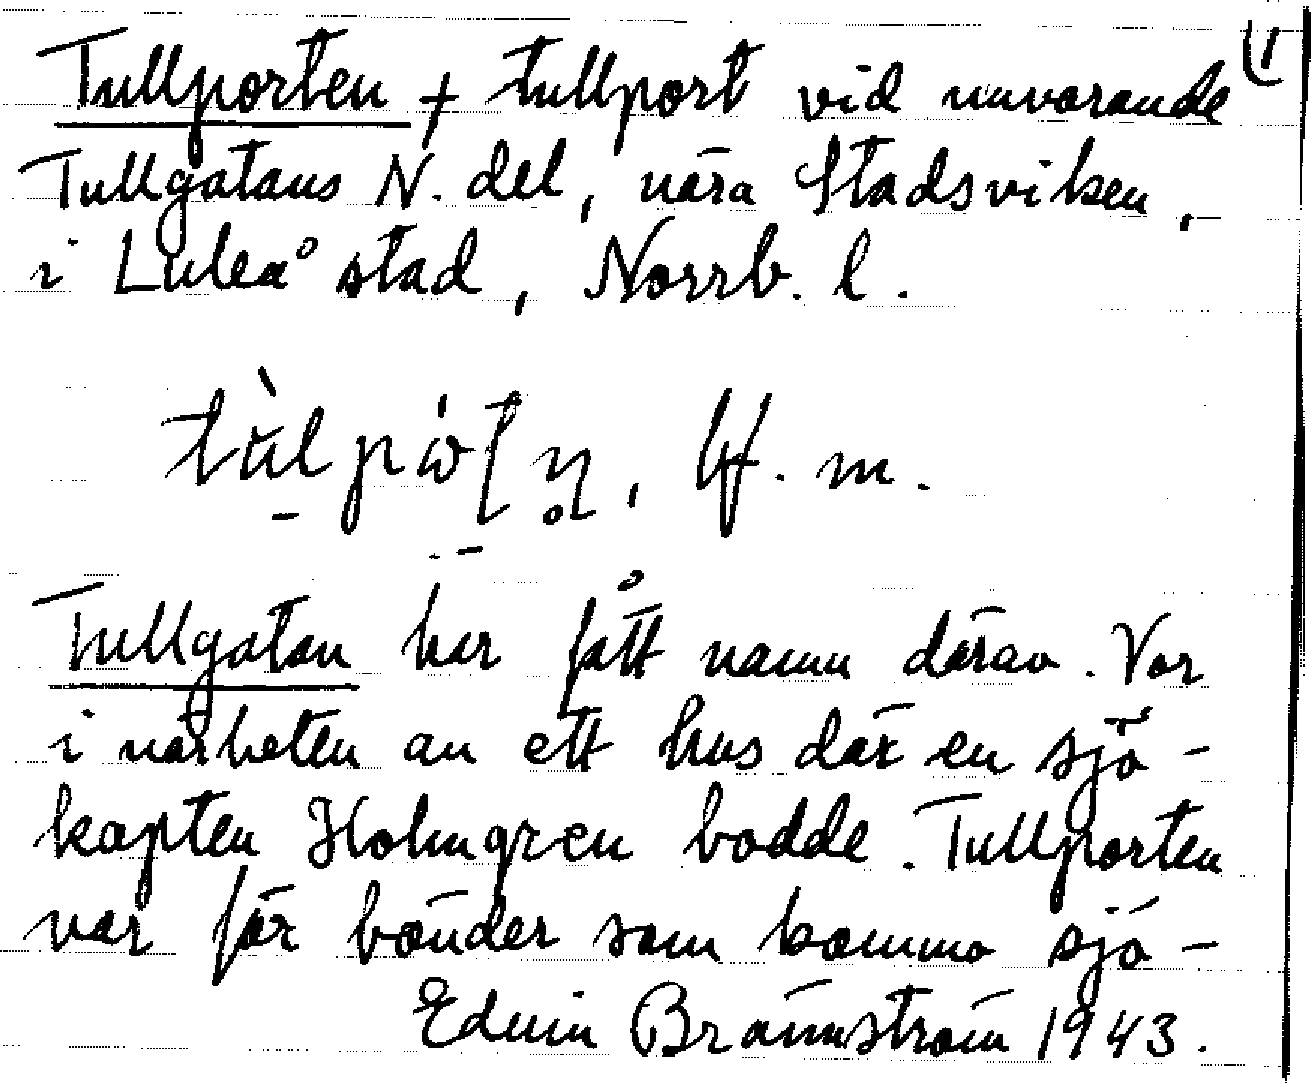 Tullporten † tullport vid nuvarande (1
Tullgatans N. del, nära Stadsviken,
i Luleå stad, Norrb. l.
bf. m.
Tullgatan har fått namn därav. Var
i närheten av ett hus där en sjö-
kapten Holmgren bodde. Tullporten
var för bönder som kommo sjö-
Edvin Brännström 1943.